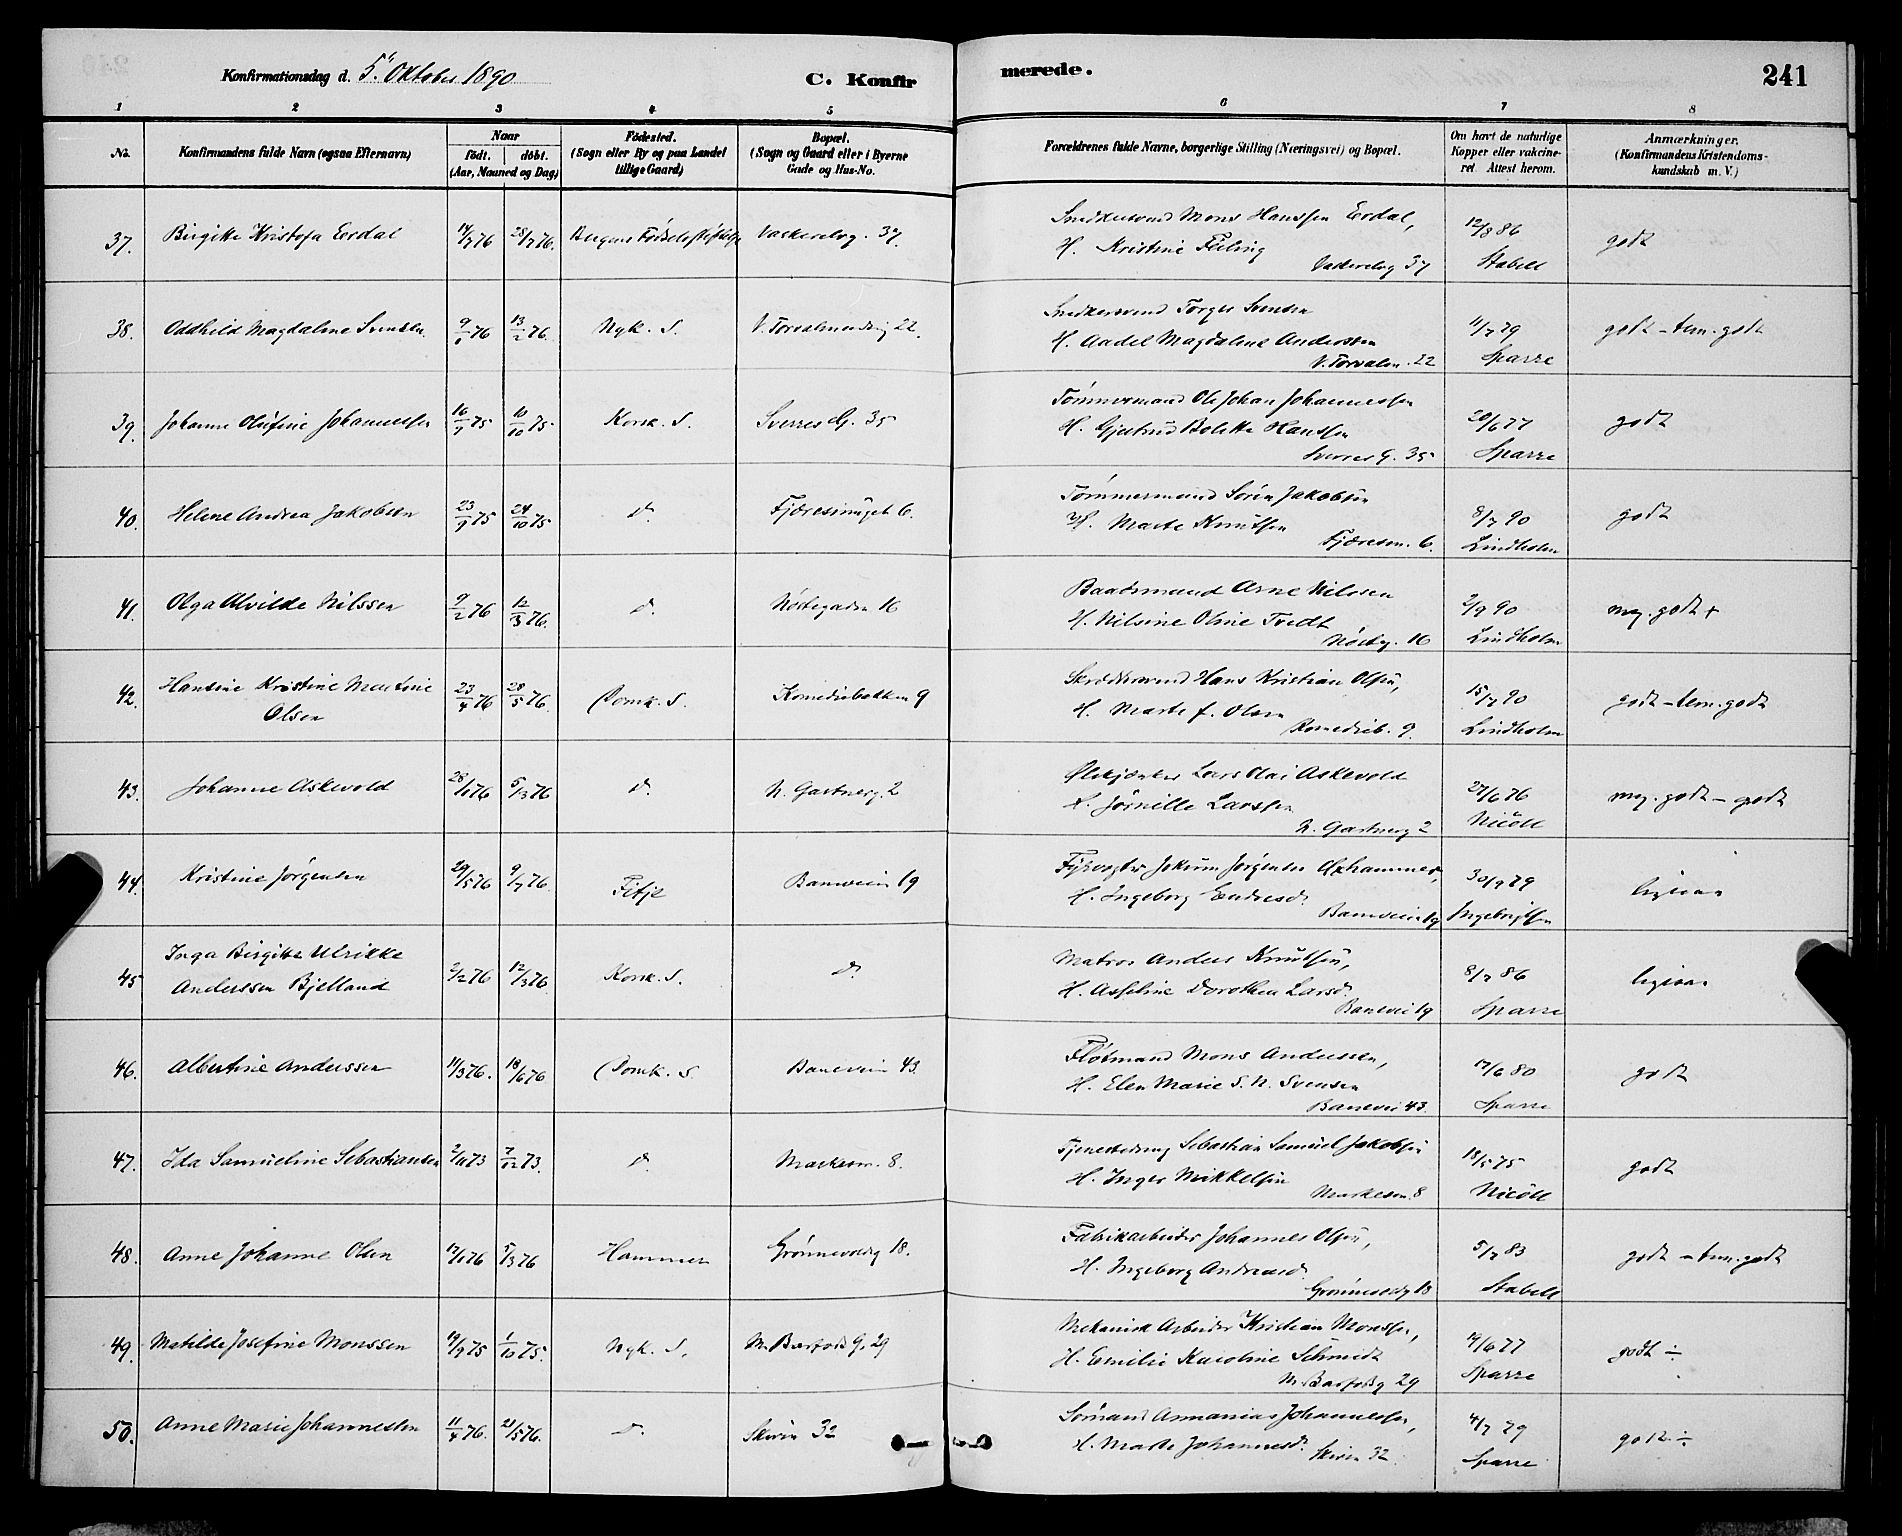 Konfirmationsdag d. 5. Oktober 1890
C. Konfir merede.
241
1 2 3 4 5 6 7 8
No. Konfirmandens fulde Navn (ogsaa Efternavn) Naar født. døbt. (Aar, Maaned og Dag) Fødested. (Sogn eller By og paa Landet tillige Gaard) Bopæl. (Sogn og Gaard eller i Byerne Gade og Hus-No. Forældrenes fulde Navne, borgerlige Stilling (Næringsvei) og Bopæl. Om havt de naturlige Kopper eller vakcineret Attest herom. Anmærkninger. (Konfirmandens Kristendomskundskab m. V.)
37. Birgitte Kristofa Eerdal 14/7 76 28/7 76. Bergens 37. Snedkersvend Mons Hanssen Eerdal, 12/8 86 godt
H. Kristine 37 Stabell
38. Oddhild Magdalene Svensen 13/2 76. Nyk. S. V. 22. Snedkersvend Torger Svensen 11/7 79 godt - tem. godt
H. Aadel Magdalene Anderssen
V. Torvalm. 22 Sparre
39. Johanne Olufine Johannessen 10/10 75 Korsk. S. Sverres G. 35 Tømmermand Ole Johan Johannessen 20/6 77 godt
H. Gjertrud Bolette Hanssen
Sverres G. 35 Sparre
40. Helene Andrea Jakobsen 23/9 75 24/10 75 d. Fjæresmuget 6. Tømmermand Søren Jakobsen 8/7 90 godt
H. Marte Knutsen
Fjæresm. 6. Lindholm
41. Olga Alvilde Nilssen 9/2 76 12/3 76. d. Nøstegaden 16 Baadsmand Arne Nilssen 2/9 90 meg. godt +
H. Nilsine Oline Tvedt
Nøsteg. 16 Lindholm
42. Hansine Kristine Martine 23/4 76 28/5 76. Domk. S. Komediebakken 9 Skræddersvend Hans Kristian Olsen, 15/7 90 godt - tem. godt
Olsen H. Marte f. Olsen
Komedieb. 9. Lindholm
43. Johanne Askevold 28/1 76 5/3 76 d. N. Gartnerg. 2 Ølskjænker Lars Olai Askevold 27/6 76 meg. godt - godt
Larssen
N. Gartnerg 2 Nicoll
44. Kristine Jørgensen 29/5 76 9/7 76. Fitje Baneveien 19 Fyrvogter Jokum Jørgensen 30/9 79 ligesaa
H. Ingeborg Endresd.
Baneveien 19 Ingebrigtsen
45 Inga Birgitte Ulrikke 2/2 76 12/3 76 Korsk. S. d. Matros Anders Knutsen, 8/7 86 ligesaa
Anderssen Bjelland H. Asseline Dorothea Larsd.
Banevei 19 Sparre
46. Albertine Anderssen 11/3 76. 18/6 76 Domk. S. Baneveien 43. Fløtmand Mons Anderssen, 17/6 80 godt
H. Elen Marie S. N. Svensen
Banevei 43. Sparre
47. Ida Samueline Sebastiansen 2/11 73 7/12 73. d. Markesm. 8. Sebastian Samuel Jakobsen 18/5 75 godt
H. Inger Mikkelsen
Markesm. 8 Nicoll
48. Anne Johanne Olsen 17/1 76 5/3 76 Hammer Grønnevoldsg 18. Fabrikarbeider Johannes Olsen, 5/7 83 godt - tem. godt
H. Ingeborg Andreasd.
Grønnevoldsg 18 Stabell
49. Matilde Josefine Monssen 19/9 75 1/10 75. Nyk. S. M. Barfods G. 29 Mekanisk Arbeider Kristian Monssen, 19/6 77 godt ÷
H. Emilie Karoline Schmidt
M. Barfodsg 29 Sparre
50. Anne Marie Johannessen 11/4 76. 21/5 76. d. Skiven 32 Sømand Annanias Johannessen, 4/7 79 godt ÷
H. Marte Johannesd. Skiven 32 Sparre